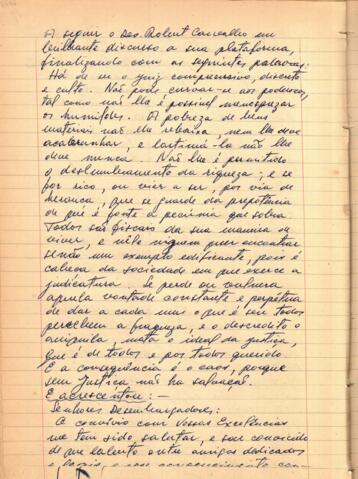 A seguir o Des. Robert Carvalho um
brilhante discurso a sua plataforma,
finalizando com as seguintes palavras:
Há de ser o juiz compreensivo, discreto
e culto. Não pode curvar-se aos poderosos,
tal como não lhe é possível menosprezar
os humildes. A pobreza de bens
materiais não lhe rebaixa, nem lhe deve
acabrunhar, e lastimá-la não lhe
deve nunca. Não lhe é permitido
o deslumbramento da riqueza; e se
for rico, ou vier a ser, por via de
herança, que se guarde da prepotência
de que é fonte a pecúnia que sobra
Todos são fiscais da sua maneira de
viver, e nele ninguem quer encontrar
senão um exemplo edificante, pois é
cabeça da sociedade em que exerce a
judicatura. Se perde ou vulnera
aquela vontade constante e perpétua
de dar a cada um o que é seu todos
percebem a fraqueza, e o descredito o
aniquila, mata o ideal da justiça,
que é de todos e por todos querido.
E a consequência é o caos, porque
sem justiça não há salvação.
E acrescentou: —
Senhores Desembargadores:
O convívio com Vossas Excelências
me tem sido salutar, e sou convencido
de que labuto entre amigos dedicados
e